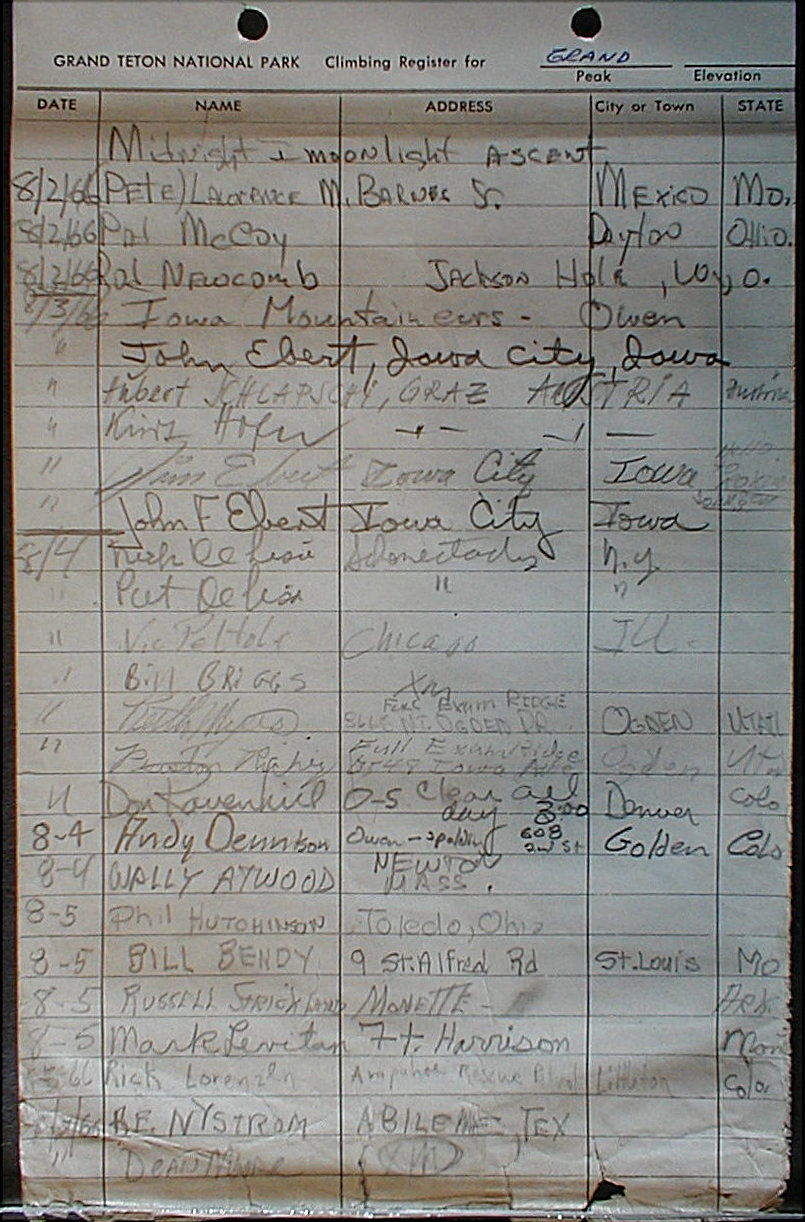 GRAND TETON NATIONAL PARK Climbing Register for GRAND
Peak Elevation
DATE NAME ADDRESS City or Town STATE
Midnight moonlight ASCENT
8/2/66 PETE) LAWRENCE M. BARNES Sr. MEXICO Mo.
8/2/66 Pat McCoy Dayton Ohio.
8/2/66 NEWCOMB JACKSON Hole, Wyo.
8/3/66 Iowa Mountaineers - Owen
" John Ebert, Iowa City, Iowa
" Hubert SCHLAPSCHY, GRAZ AUSTRIA Austria
" Hofer - " - - " -
" Jim Ebert Iowa City Iowa
" John F Ebert Iowa City Iowa
8/4 Schenectady N.Y.
" "
" Vic Chicago Ill.
" Bill BRIGGS XM
" Keith Myers FULL Exum RIDGE
NT. OGDEN DR. OGDEN UTAH
" Full Exum Ridge
Iowa Ave Ogden Utah
" Don Ravenhill O-S Clear all
day 3:00 Denver Colo
8-4 Andy Dennison Owen-Spalding 608
2nd St Golden Colo
8-4 WALLY ATWOOD NEWTON
MASS.
8-5 Phil HUTCHINSON Toledo, Ohio
8-5 BILL BENDY 9 St. Alfred Rd St. Louis Mo
8-5 RUSSELL STRICKLAND MONETTE - Ark.
8-5 Mark Levitan Ft. Harrison Mont
66 Rick Lorenzen Arapahoe Rescue Littleton Colo.
B.E. NYSTROM ABILENE, TEX
" Dean Moore (XM)